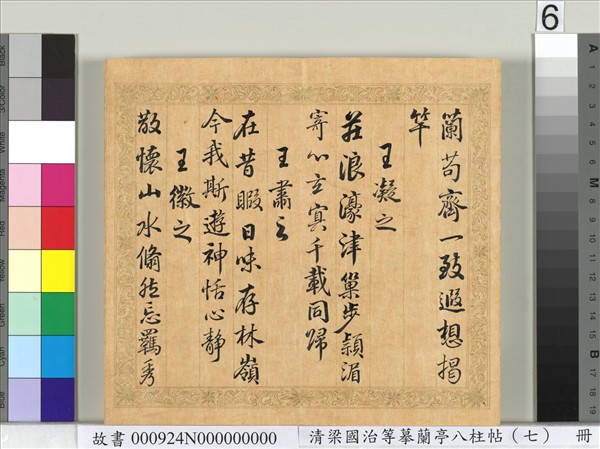 6
蘭苟齊一致遐想揭
竿
王凝之
莊浪濠津巢步潁湄
寄心玄冥千載同歸
王肅之
在昔暇日味存林嶺
今我斯遊神恬心靜
王徽之
散懷山水翛然忘羈秀
Black
3/Color
White
Magenta
Red
Yellow
Green
Cyan
Blue
M
B
17
18
19
故書 000924N000000000
清梁國治等摹蘭亭八柱帖（七） 冊